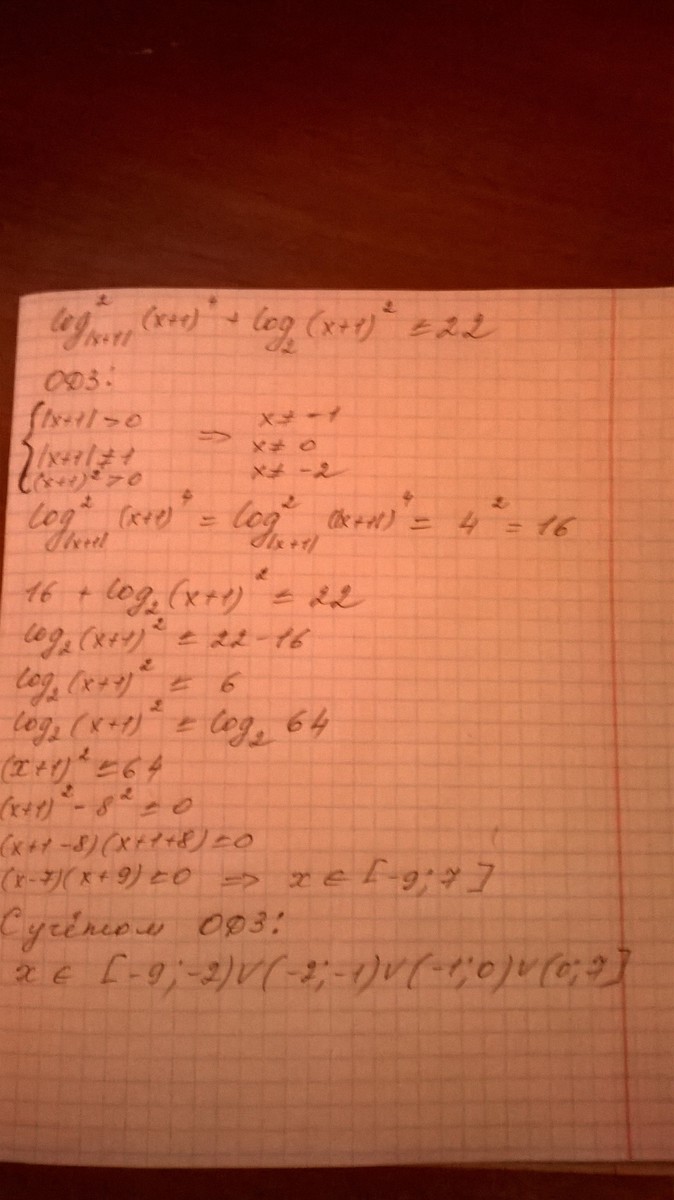 log²_|x+1| (x+1)⁴ + log₂ (x+1)² ≤ 22
ОДЗ:
{ |x+1| > 0 x ≠ -1
|x+1| ≠ 1 ⇒ x ≠ 0
(x+1)² > 0 x ≠ -2
log²_|x+1| (x+1)⁴ = log²_|x+1| |x+1|⁴ = 4² = 16
16 + log₂ (x+1)² ≤ 22
log₂ (x+1)² ≤ 22-16
log₂ (x+1)² ≤ 6
log₂ (x+1)² ≤ log₂ 64
(x+1)² ≤ 64
(x+1)² - 8² ≤ 0
(x+1-8)(x+1+8) ≤ 0
(x-7)(x+9) ≤ 0 ⇒ x ∈ [-9; 7]
С учётом ОДЗ:
x ∈ [-9;-2) ∨ (-2;-1) ∨ (-1;0) ∨ (0;7]